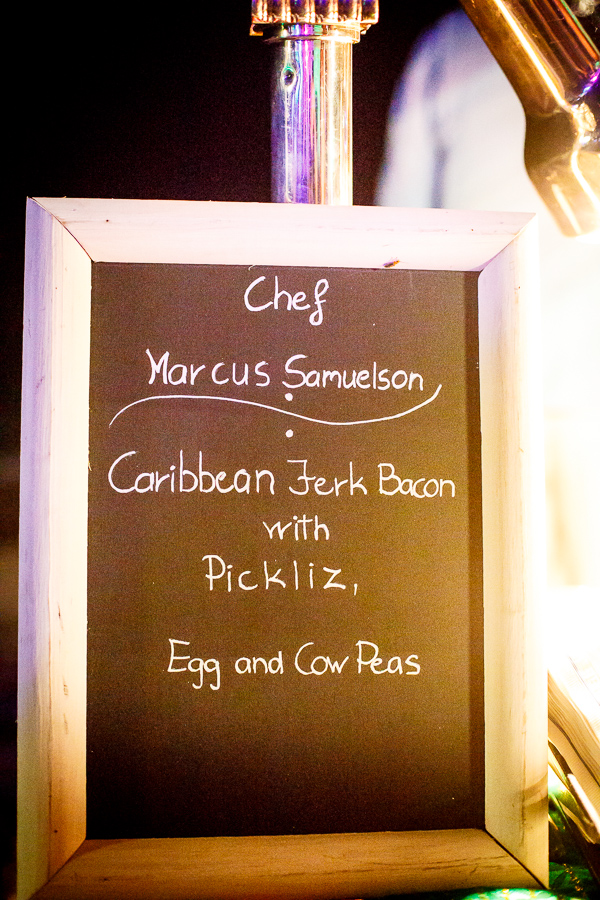 Chef
Marcus Samuelson
Caribbean Jerk Bacon
with
Pickliz,
Egg and Cow Peas